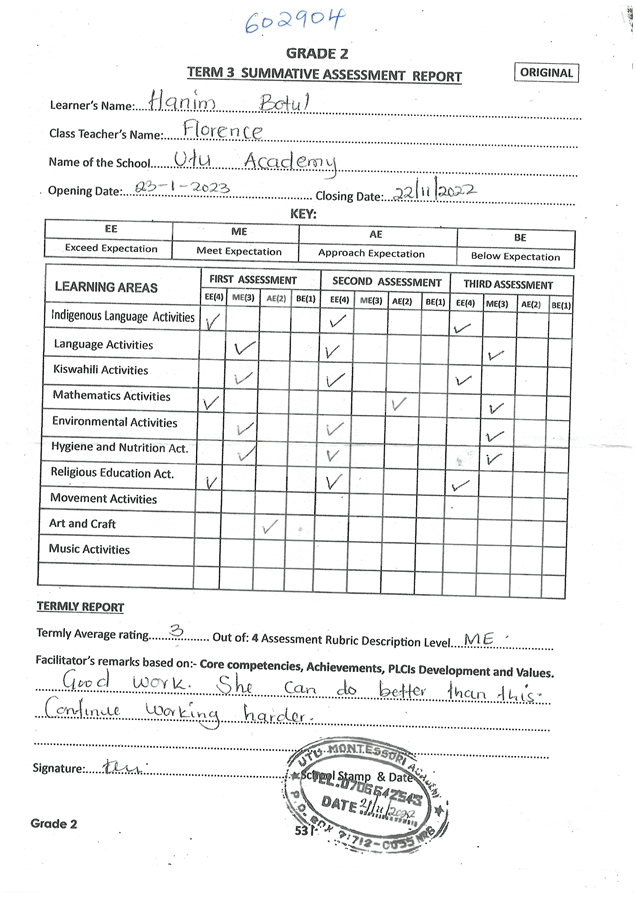 602904
GRADE 2
TERM 3 SUMMATIVE ASSESSMENT REPORT
ORIGINAL
Learner's Name: Hanim Botul
Class Teacher's Name: Florence
Name of the School Utu Academy
Opening Date: 23-1-2023 Closing Date: 22/11/2022
KEY:
EE ME AE BE
Exceed Expectation Meet Expectation Approach Expectation Below Expectation
LEARNING AREAS FIRST ASSESSMENT SECOND ASSESSMENT THIRD ASSESSMENT
EE(4) ME(3) AE(2) BE(1) EE(4) ME(3) AE(2) BE(1) EE(4) ME(3) AE(2) BE(1)
Indigenous Language Activities ✓ ✓ ✓
Language Activities ✓ ✓ ✓
Kiswahili Activities ✓ ✓ ✓
Mathematics Activities ✓ ✓ ✓
Environmental Activities ✓ ✓ ✓
Hygiene and Nutrition Act. ✓ ✓ ✓
Religious Education Act. ✓ ✓ ✓
Movement Activities
Art and Craft ✓
Music Activities
TERMLY REPORT
Termly Average rating 3 Out of: 4 Assessment Rubric Description Level ME
Facilitator's remarks based on:- Core competencies, Achievements, PLCIs Development and Values.
Good work. She can do better than this.
Continue working harder.
Signature: School Stamp & Date
UTU MONTESSORI
TEL. 0706642543
DATE 21/11/2022
P.O. BOX
Grade 2
531-